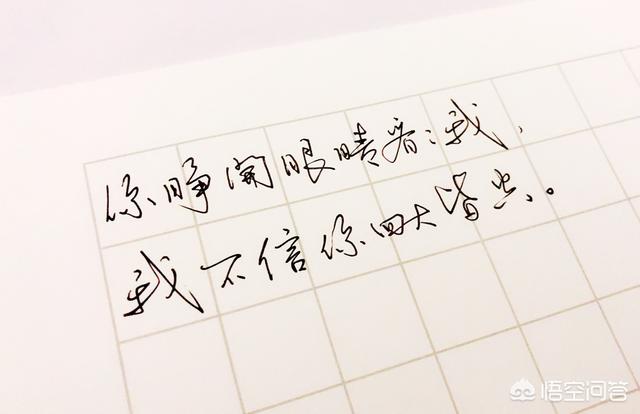 你睁开眼睛看看我,
我不信你四大皆空。
悟空问答